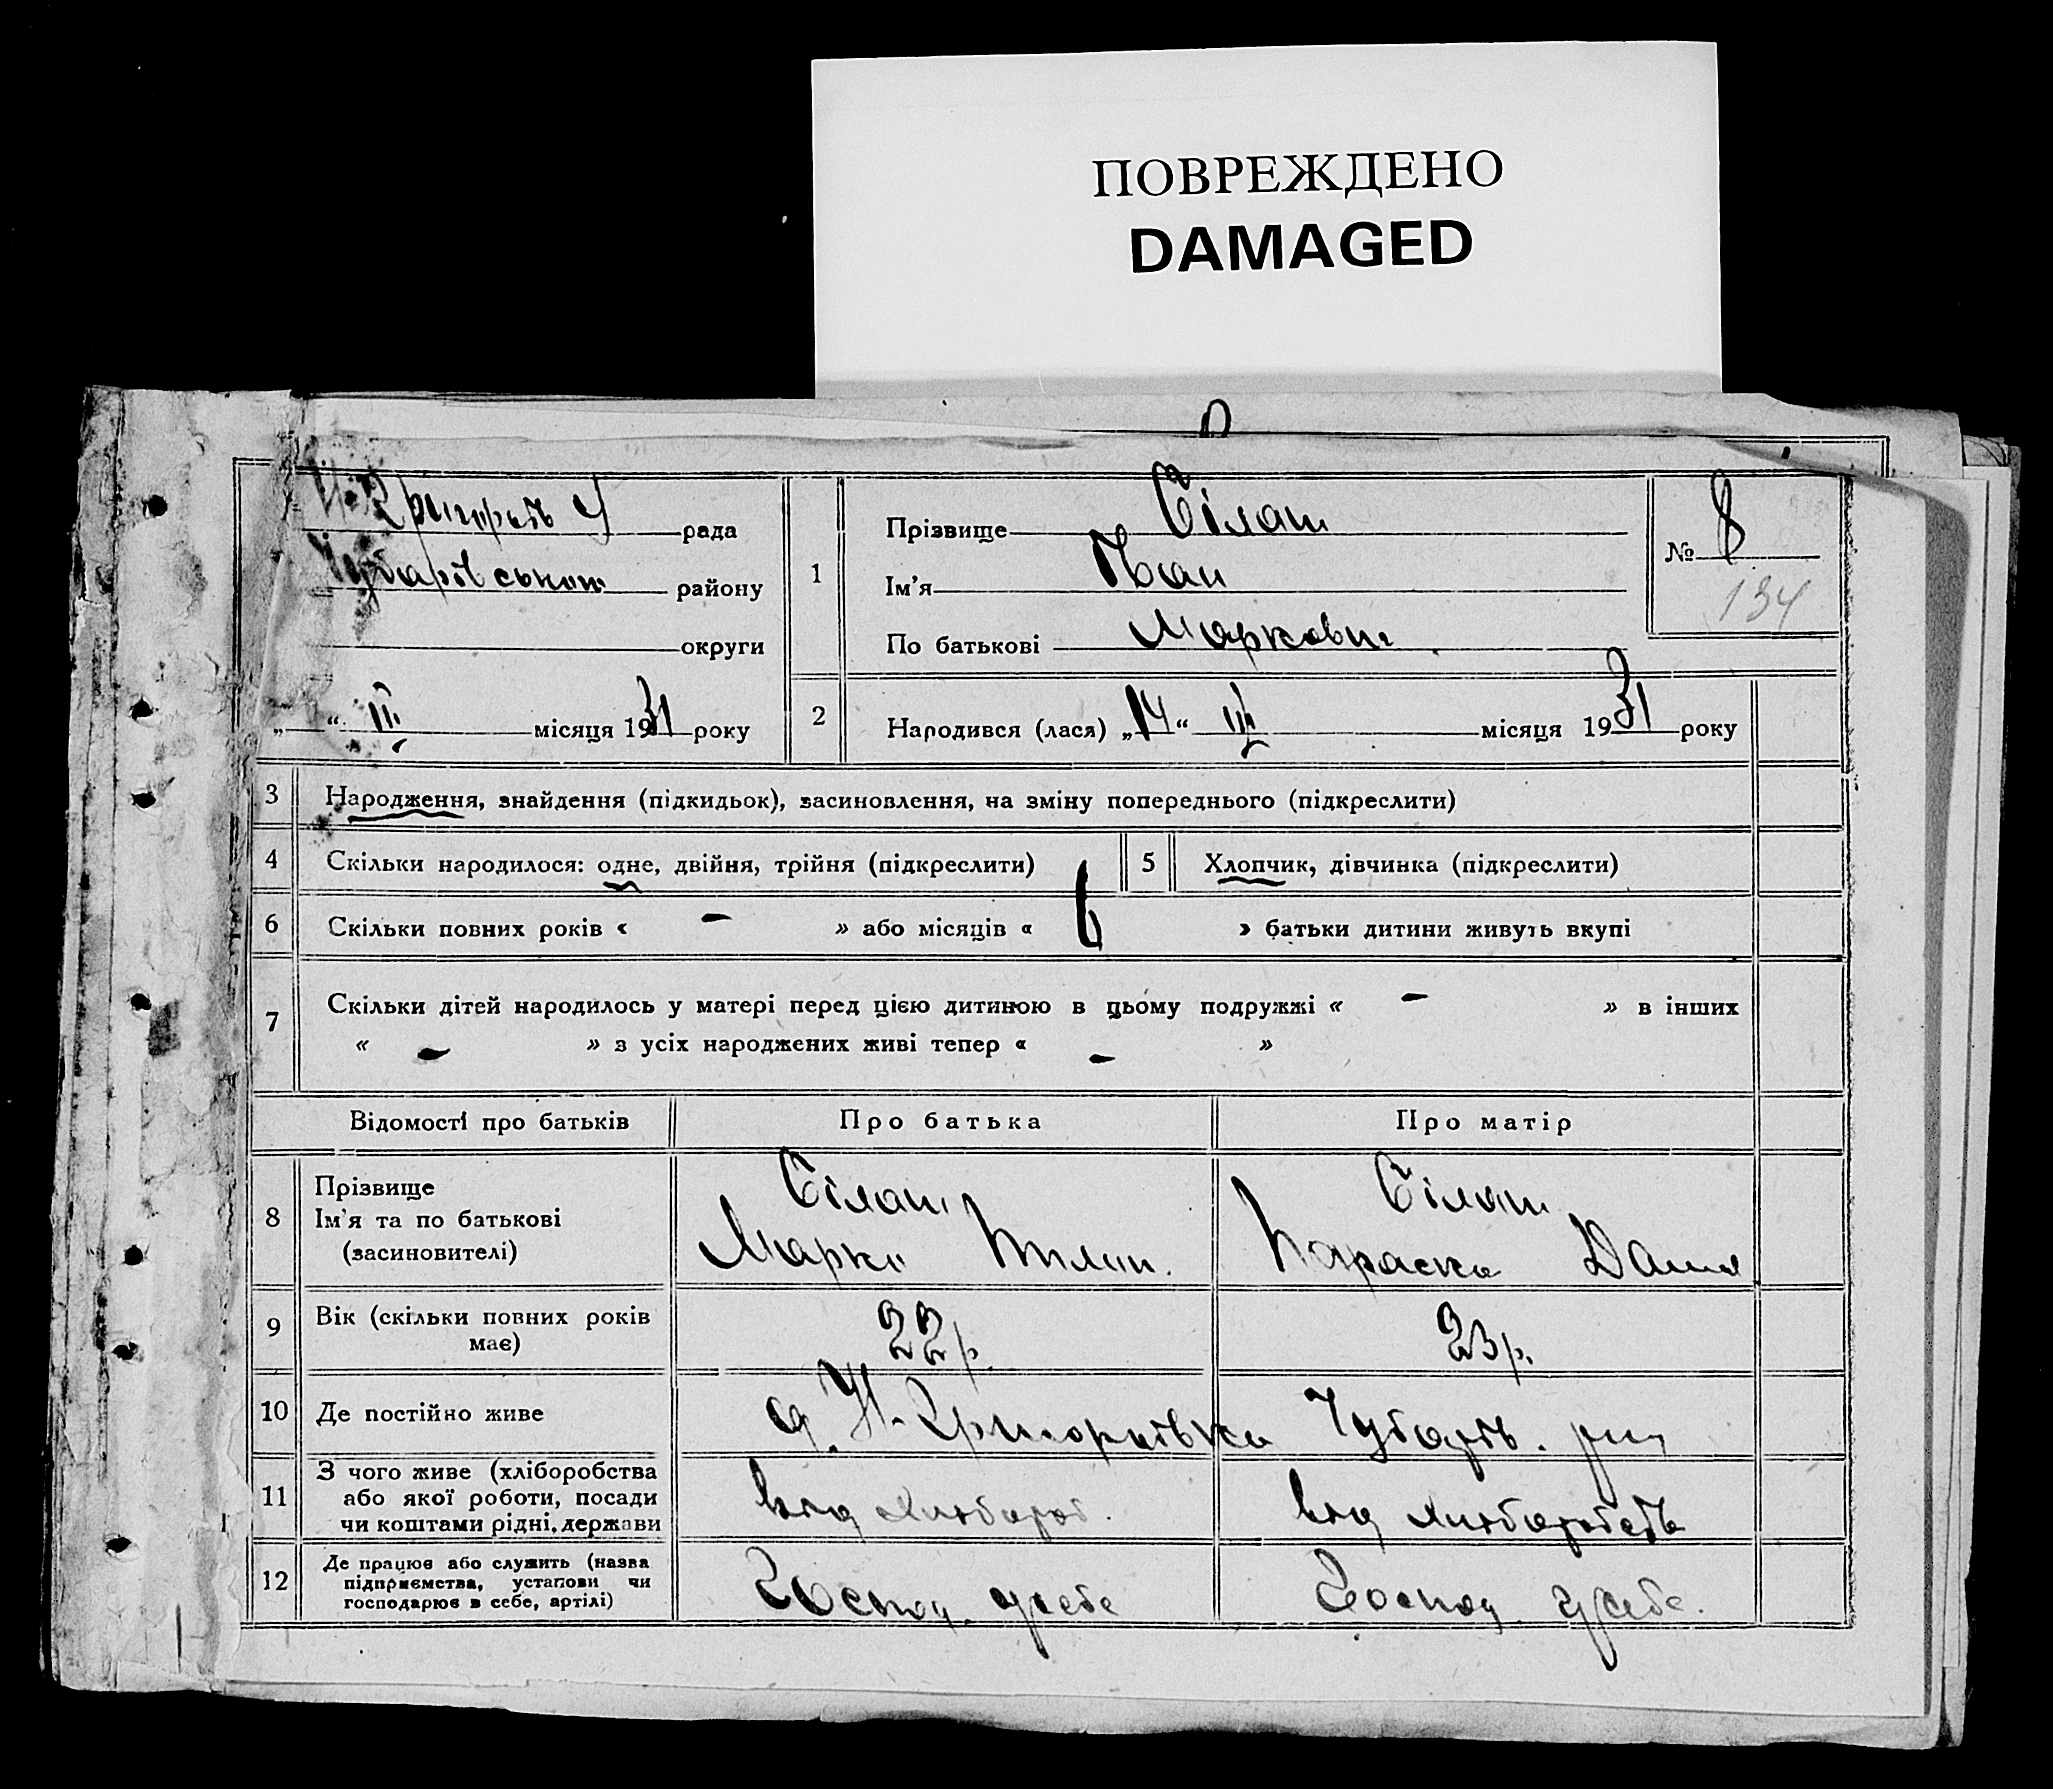 ПОВРЕЖДЕНО
DAMAGED
рада
Чубарівського району
округи
„ “ III місяця 1931 року
1
Прізвище Сілаш
Ім'я Іван
По батькові Маркович
№ 8
134
2
Народився (лася) „14“ III місяця 1931 року
3 Народження, знайдення (підкидьок), засиновлення, на зміну попереднього (підкреслити)
4 Скільки народилося: одне, двійня, трійня (підкреслити)
5 Хлопчик, дівчинка (підкреслити)
6 Скільки повних років « – » або місяців « 6 » батьки дитини живуть вкупі
7 Скільки дітей народилось у матері перед цією дитиною в цьому подружжі « – » в інших
« – » з усіх народжених живі тепер « – »
Відомості про батьків Про батька Про матір
8 Прізвище
Ім'я та по батькові
(засиновителі)
Сілаш
Марко
Сілаш
Параска
9 Вік (скільки повних років
має)
22 р.
23 р.
10 Де постійно живе
с. Н-Григорівка Чубарів.
11 З чого живе (хліборобства
або якої роботи, посади
чи коштами рідні, держави
від хлібороб.
від хліборобств
12 Де працює або служить (назва
підприємства, установи чи
господарює в себе, артілі)
Господ. у себе
Господ. у себе.